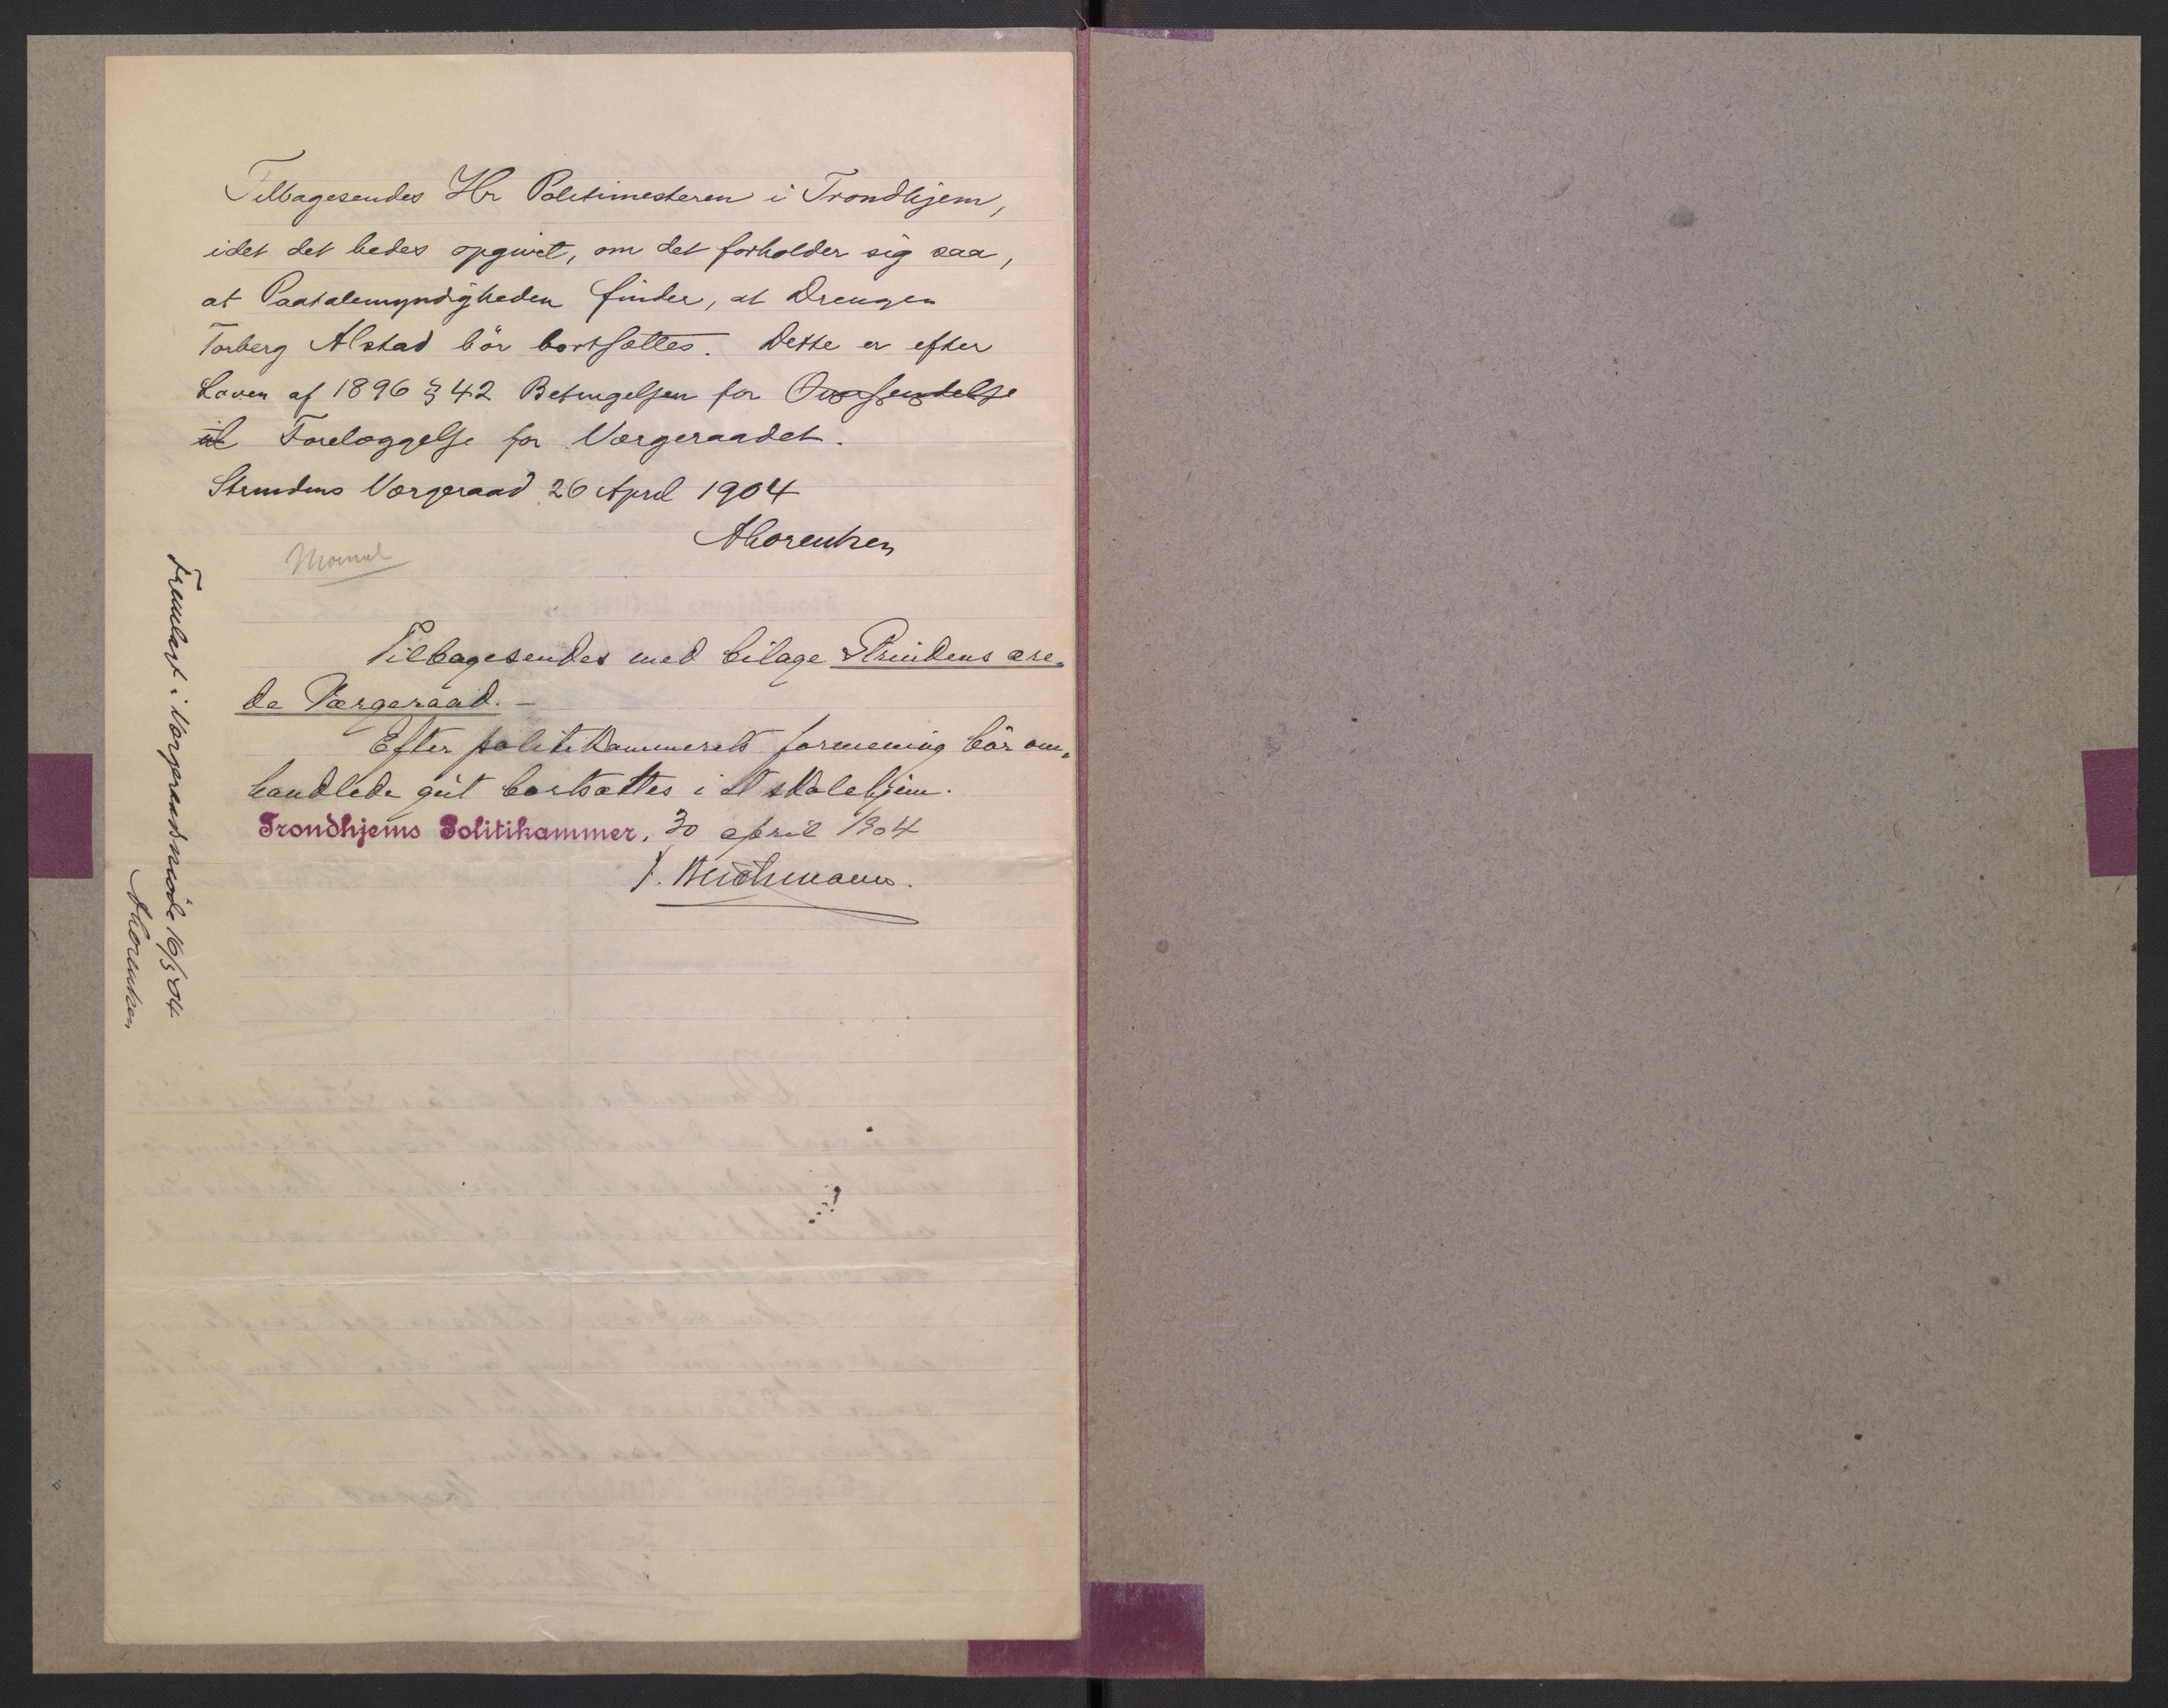 Tilbagesendes Hr Politimesteren i Trondhjem,
idet det bedes opgivet, om det forholder sig saa,
at Paatalemyndigheden finder, at Drengen
Torberg Alstad bør bortsættes. Dette er efter
Loven af 1896 § 42 Betingelsen for Oversendelse
til Forelæggelse for Værgeraadet.
Strindens Værgeraad 26 April 1904
A Lorentzen
Tilbagesendes med bilage Strindens ære-
de Værgeraad. –
Efter politikammerets formening bør om-
handlede gut bortsættes i et skolehjem.
Trondhjems Politikammer, 30 april 1904
Fremlagt i Værgeraadsmøde 16/5 04
A Lorentzen